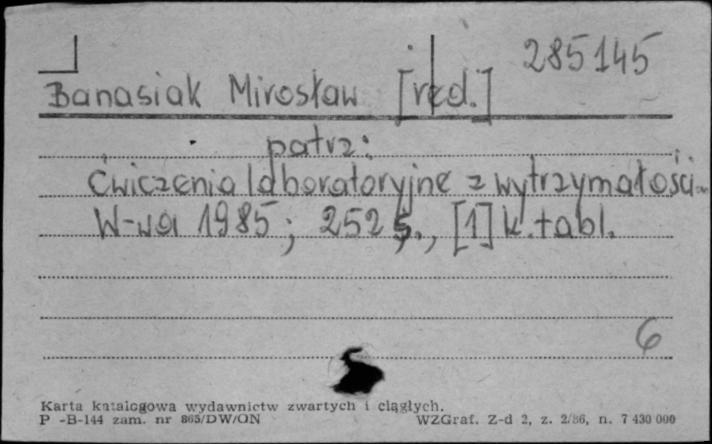 285145
Banasiak Mirosław [red.]
patrz:
Ćwiczenia laboratoryjne z wytrzymałości..
W-wa 1985; 252 s., [1] k. tabl.
6
Karta katalogowa wydawnictw zwartych i ciągłych.
P -B-144 zam. nr 865/DW/ON WZGraf. Z-d 2, z. 2/86, n. 7 430 000